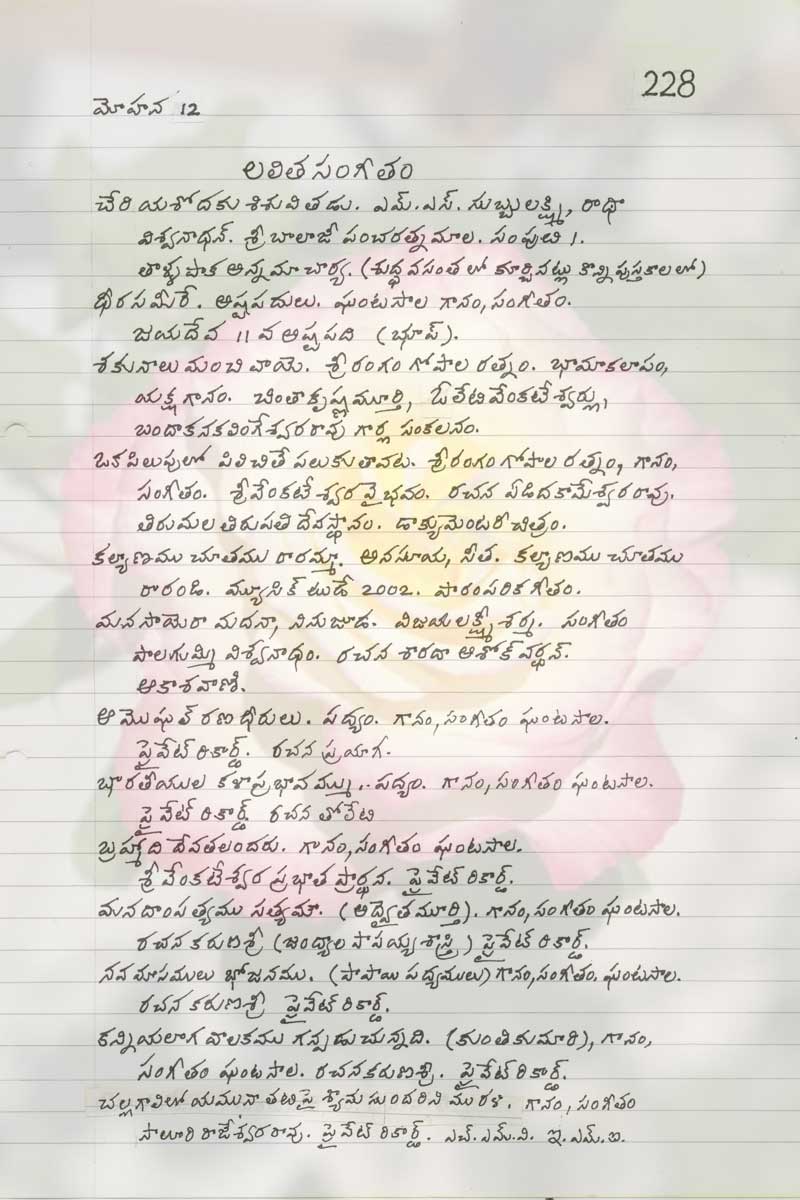 228
మోహన 12
లలిత సంగీతం
చేరి యశోదకు శిశు వితడు. ఎమ్.ఎస్. సుబ్బులక్ష్మి, రాధా
విశ్వనాథన్. శ్రీ బాలాజీ పంచరత్నమాల. సంపుటి 1.
తాళ్ళపాక అన్నమాచార్య. (శుద్ధ వసంతలో కూర్చినట్లు కొన్ని పుస్తకాలలో)
ధీర సమీరే. అష్టపదులు. ఘంటసాల గానం, సంగీతం.
జయదేవ 11 వ అష్టపది (భూప్).
శకునాలు మంచి వాయె. శ్రీరంగం గోపాల రత్నం. భామాకలాపం,
యక్షగానం. చింతా కృష్ణమూర్తి, ఓలేటి వేంకటేశ్వర్లు,
బందా కనకలింగేశ్వరరావు గార్ల సంకలనం.
ఒక పిలుపులో పిలిచితే పలుకుతావట. శ్రీరంగం గోపాల రత్నం, గానం,
సంగీతం. శ్రీ వేంకటేశ్వర వైభవం. రచన ఏడిద కామేశ్వరరావు.
తిరుమల తిరుపతి దేవస్థానం. డాక్యుమెంటరీ చిత్రం.
కల్యాణము చూతము రారమ్మా. అనసూయ, సీత. కల్యాణము చూతము
రారండి. మ్యూసిక్ టుడే 2002. పారంపరిక గీతం.
మనసాయెరా మదనా, నినుజూడ. విజయలక్ష్మీ శర్మ. సంగీతం
పాలగుమ్మి విశ్వనాథం. రచన శారదా అశోక్ వర్థన్.
ఆకాశవాణి.
ఆ మొఘల్ రణధీరులు. పద్యం. గానం, సంగీతం ఘంటసాల.
ప్రైవేట్ రికార్డ్. రచన ప్రయాగ.
భారతీయుల కళాప్రభావమ్ము.. పద్యం. గానం, సంగీతం ఘంటసాల.
ప్రైవేట్ రికార్డ్ రచన తోలేటి
బ్రహ్మాది దేవతలందరు. గానం, సంగీతం ఘంటసాల.
శ్రీ వేంకటేశ్వర ప్రభాత ప్రార్థన. ప్రైవేట్ రికార్డ్.
మన దాంపత్యము సత్యమౌ. (అద్వైతమూర్తి). గానం, సంగీతం ఘంటసాల.
రచన కరుణశ్రీ (జంధ్యాల పాపయ్య శాస్త్రి) ప్రైవేట్ రికార్డ్.
నవ మాసములు భోజనము. (పాపాయి పద్యములు) గానం, సంగీతం. ఘంటసాల.
రచన కరుణశ్రీ ప్రైవేట్ రికార్డ్.
కన్నియలాగ వాలకము గన్పడుచున్నది. (కుంతి కుమారి), గానం,
సంగీతం ఘంటసాల. రచన కరుణశ్రీ. ప్రైవేట్ రికార్డ్.
చల్లగాలిలో యమునా తటిపై శ్యామ సుందరిని మురళి. గానం, సంగీతం
సాలూరి రాజేశ్వరరావు. ప్రైవేట్ రికార్డ్. ఎచ్.ఎమ్.వి. ఇ.ఎమ్.ఐ.